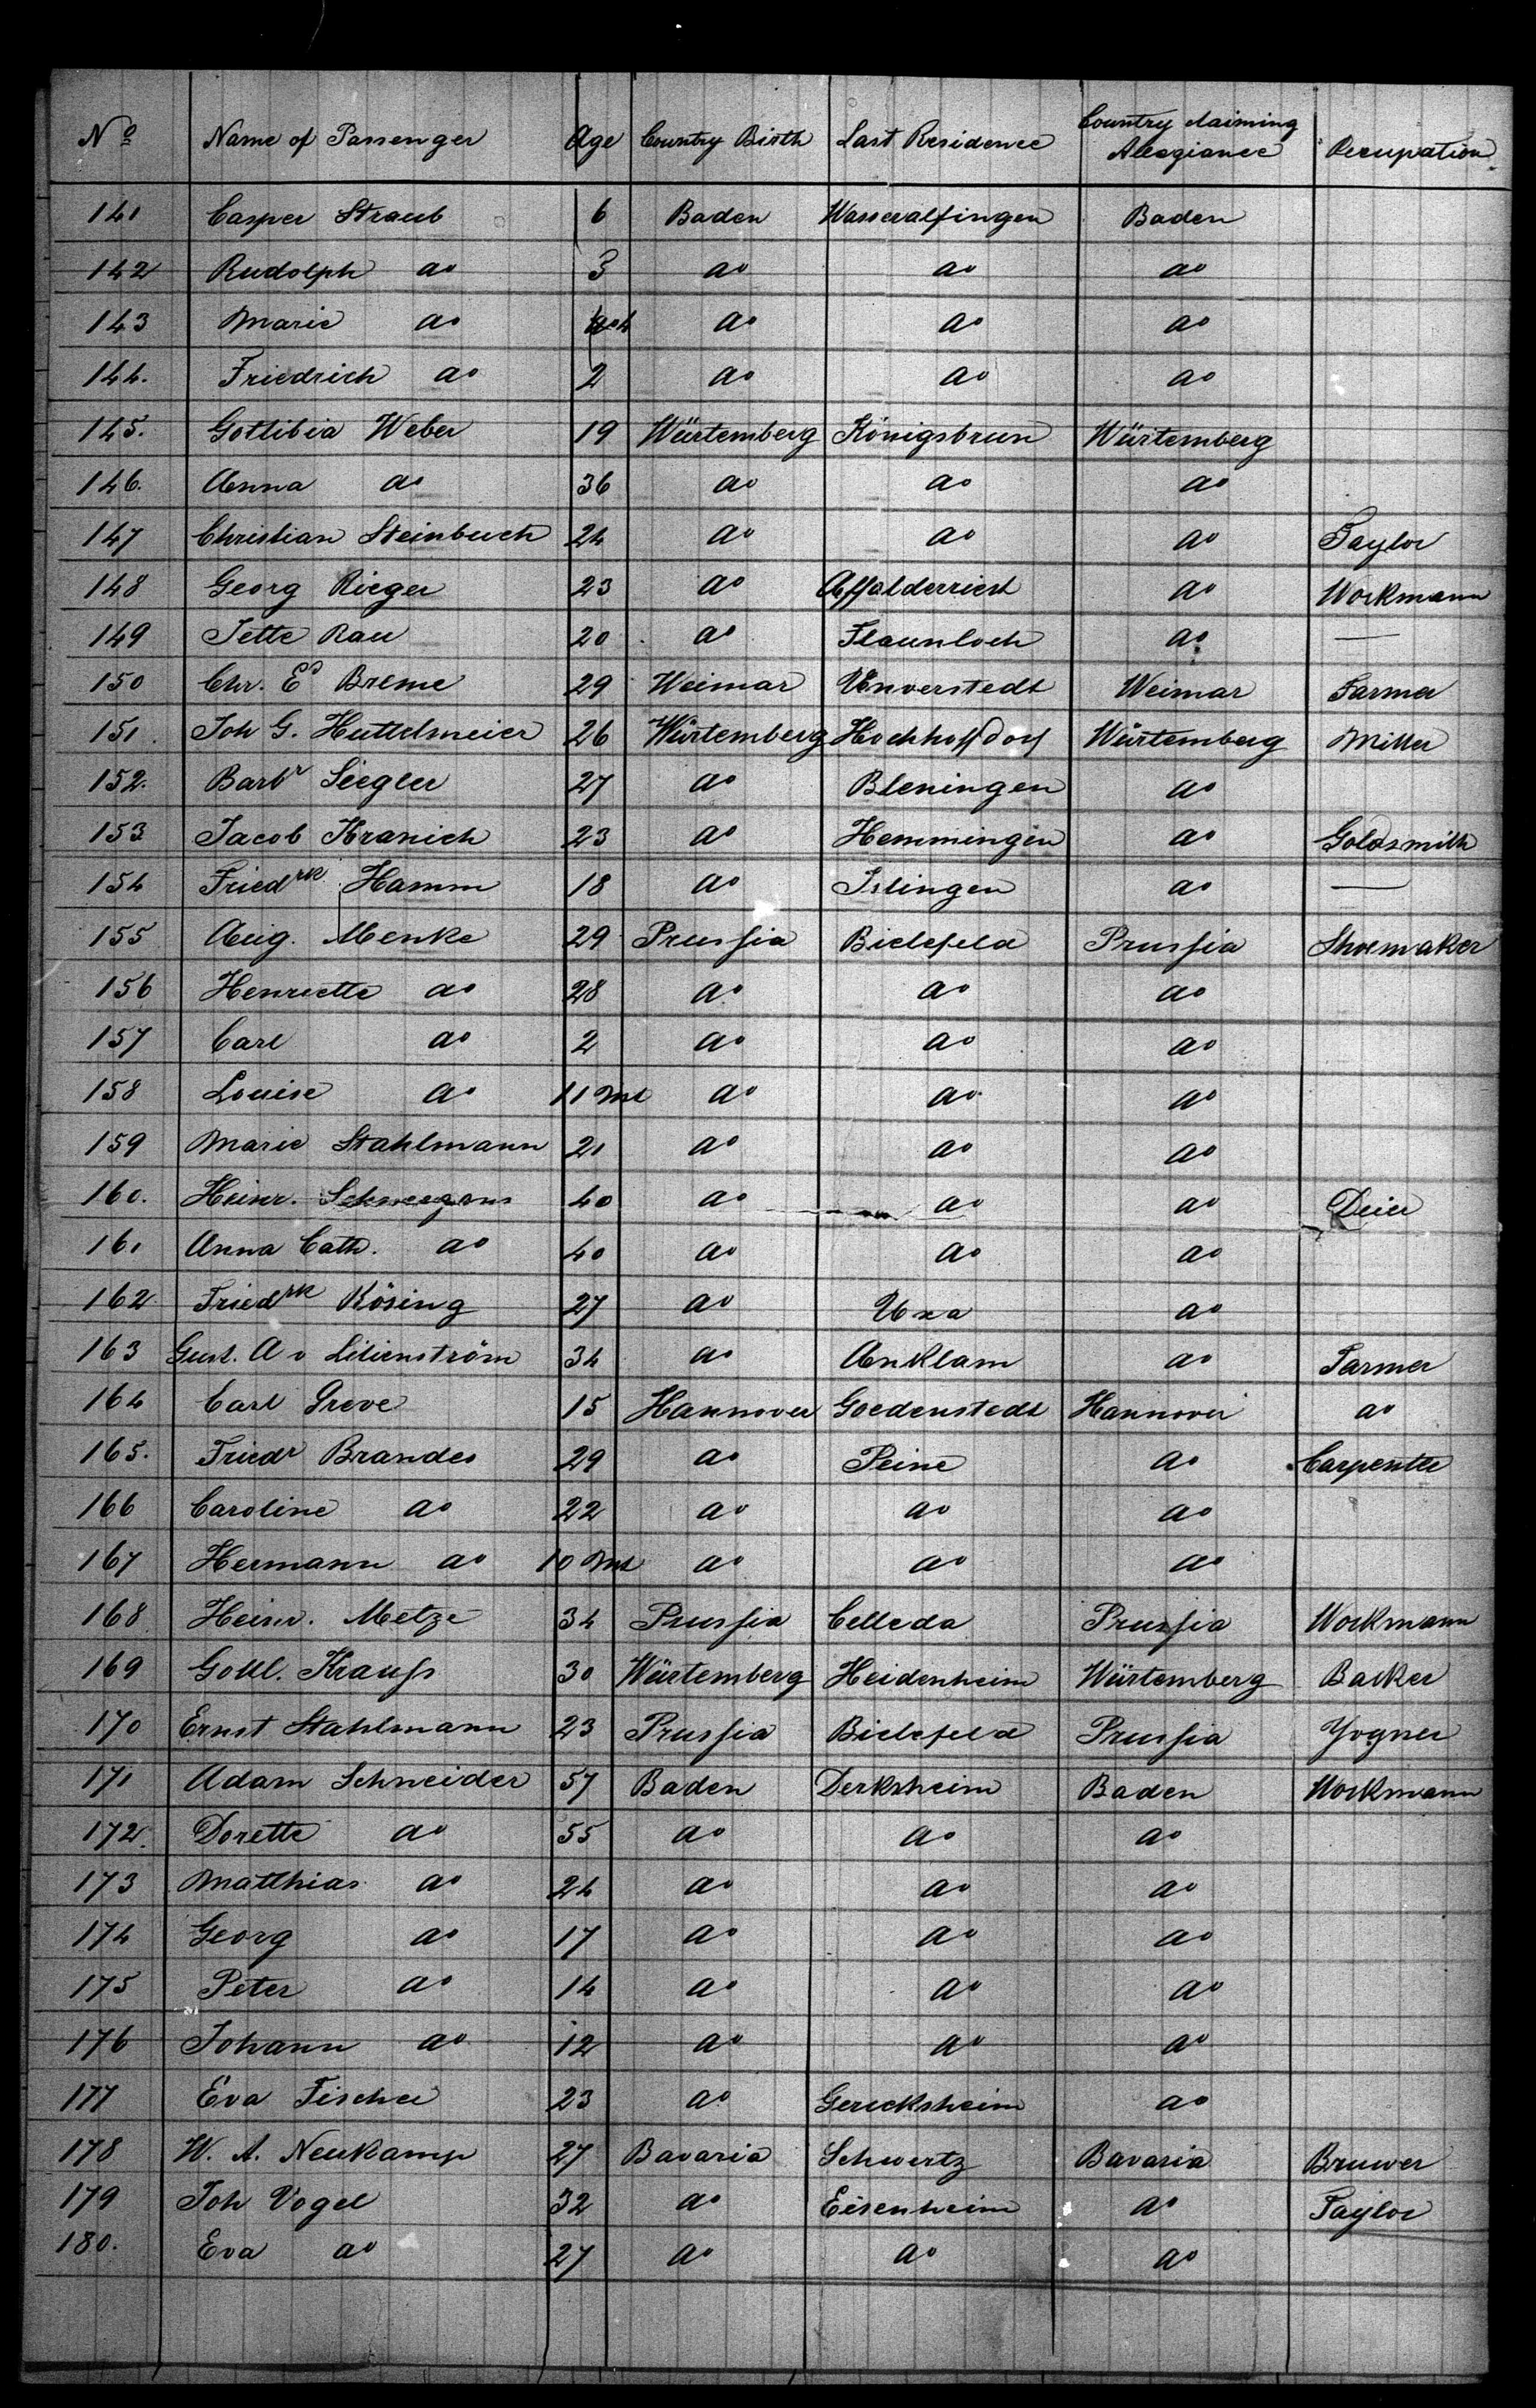 No Name of Passenger Age Country Birth Last Residence Country claiming Alegiance Occupation
141 Casper Straub 6 Baden Wasseralfingen Baden
142 Rudolph do 3 do do do
143 Marie do do do do
144. Friedrich do 2 do do do
145. Gottlibia Weber 19 Würtemberg Königsbrun Würtemberg
146. Anna do 36 do do do
147 Christian Steinbuch 24 do do do Taylor
148 Georg Rieger 23 do Affalderriest do Workmann
149 Jette Rau 20 do Flaunloch do —
150 Chr. Ed Breme 29 Weimar Weimar Farmer
151. Joh G. Huttelmeier 26 Würtemberg Hochhoffdorf Würtemberg Miller
152. Barbr Siegler 27 do Bleningen do
153 Jacob Kranich 23 do Hemmingen do Goldsmith
154 Friedrk Hamm 18 do Islingen do —
155 Aug. Menke 29 Prussia Bielefeld Prussia Shoemaker
156 Henriette do 28 do do do
157 Carl do 2 do do do
158 Louise do 11 Mt do do do
159 Marie Stahlmann 21 do do do
160. Heinr. Schneegans 40 do do do Deier
161 Anna Cath. do 40 do do do
162 Friedrk Kösing 27 do Uxa do
163 Gust. A v Lilienström 34 do Anklam do Farmer
164 Carl Greve 15 Hannover Goedenstedt Hannover do
165. Friedr Brandes 29 do Peine do Carpenter
166 Caroline do 22 do do do
167 Hermann do 10 Mt do do do
168 Heinr. Metze 34 Prussia Celleda Prussia Workmann
169 Gottl. Krauss 30 Würtemberg Heidenheim Würtemberg Backer
170 Ernst Stahlmann 23 Prussia Bielefeld Prussia Yogner
171 Adam Schneider 57 Baden Derksheim Baden Workmann
172. Dorette do 55 do do do
173 Matthias do 24 do do do
174 Georg do 17 do do do
175 Peter do 14 do do do
176 Johann do 12 do do do
177 Eva Fischer 23 do Gerecksheim do
178 W. A. Neukamp 27 Bavaria Schwertz Bavaria Bruwer
179 Joh Vogel 32 do Eisenheim do Taylor
180. Eva do 27 do do do